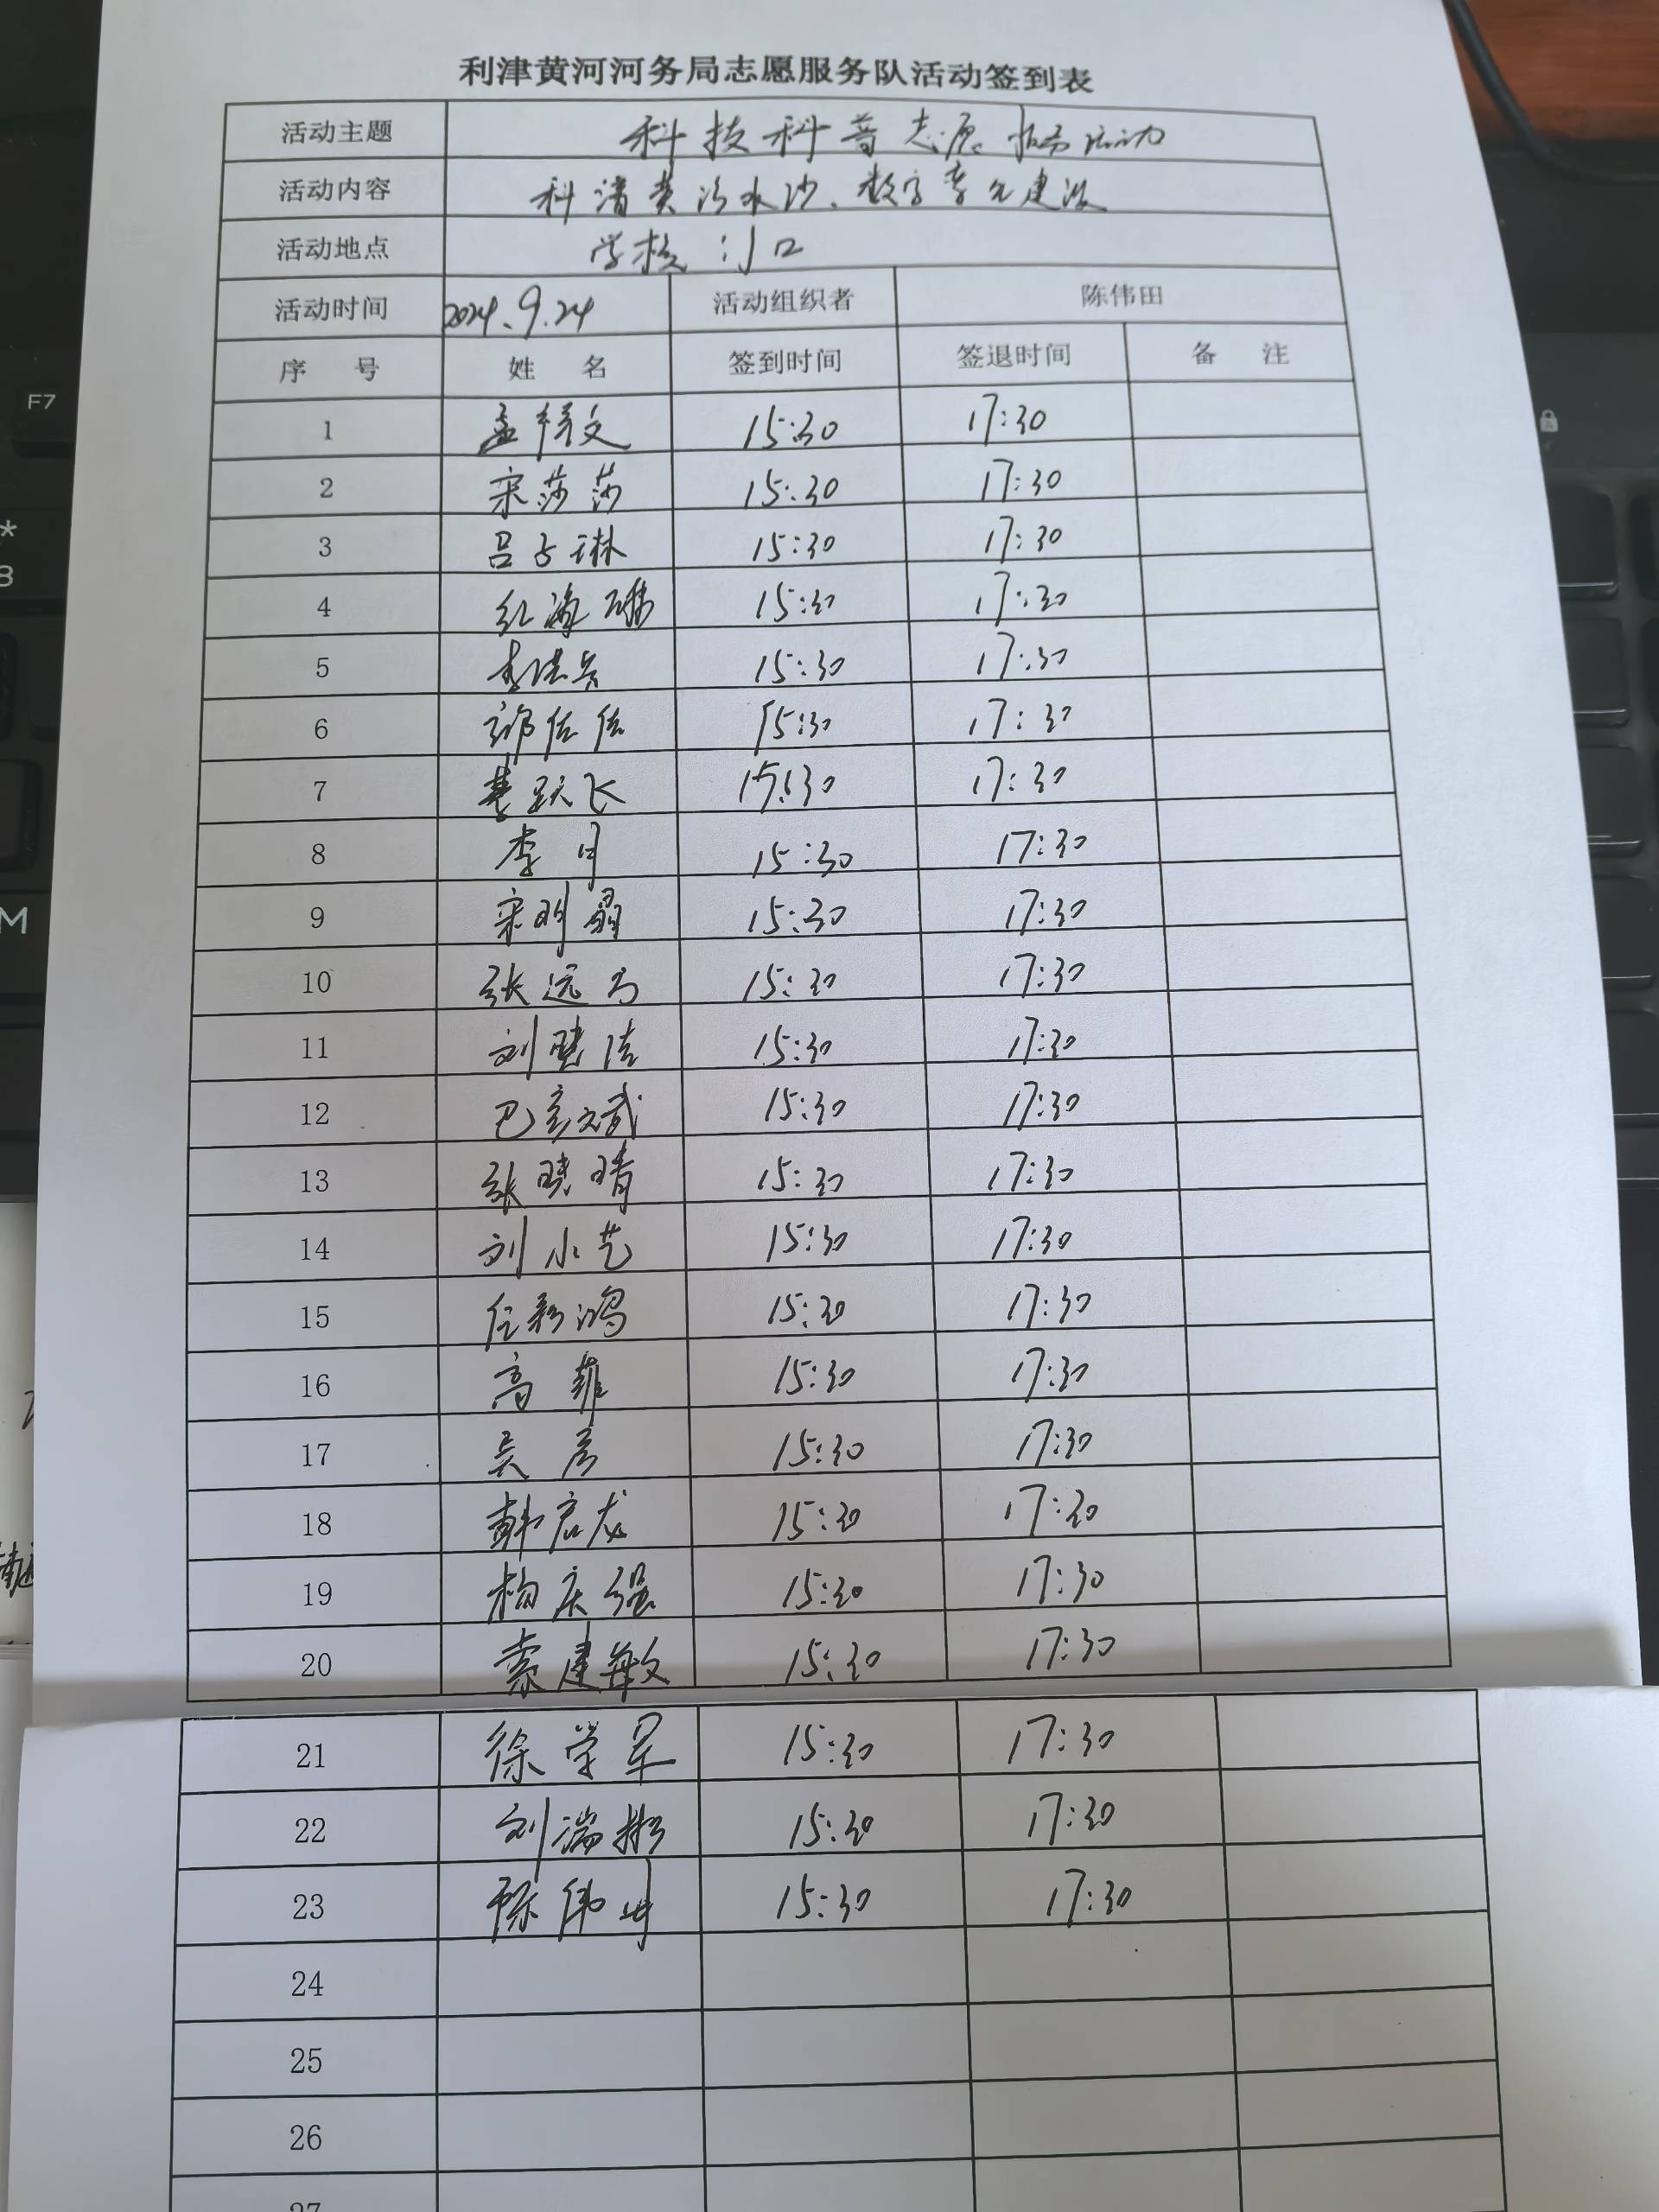 利津黄河河务局志愿服务队活动签到表
活动主题 科技科普志愿服务活动
活动内容 科谱黄河水沙、数字孪生建设
活动地点 学校门口
活动时间 2024.9.24 活动组织者 陈伟田
序 号 姓 名 签到时间 签退时间 备 注
1 孟祥文 15:30 17:30
2 宋莎莎 15:30 17:30
3 吕子琳 15:30 17:30
4 纪海 15:30 17:30
5 李 15:30 17:30
6 佳佳 15:30 17:30
7 跃飞 15:30 17:30
8 李月 15:30 17:30
9 宋明磊 15:30 17:30
10 张远 15:30 17:30
11 刘晓洁 15:30 17:30
12 巴彦斌 15:30 17:30
13 张晓晴 15:30 17:30
14 刘小艺 15:30 17:30
15 任彩鸿 15:30 17:30
16 高菲 15:30 17:30
17 吴彦 15:30 17:30
18 韩启龙 15:30 17:30
19 杨庆强 15:30 17:30
20 索建敏 15:30 17:30
21 徐学军 15:30 17:30
22 刘瑞彬 15:30 17:30
23 陈伟田 15:30 17:30
24
25
26
27
F7
*
8
M